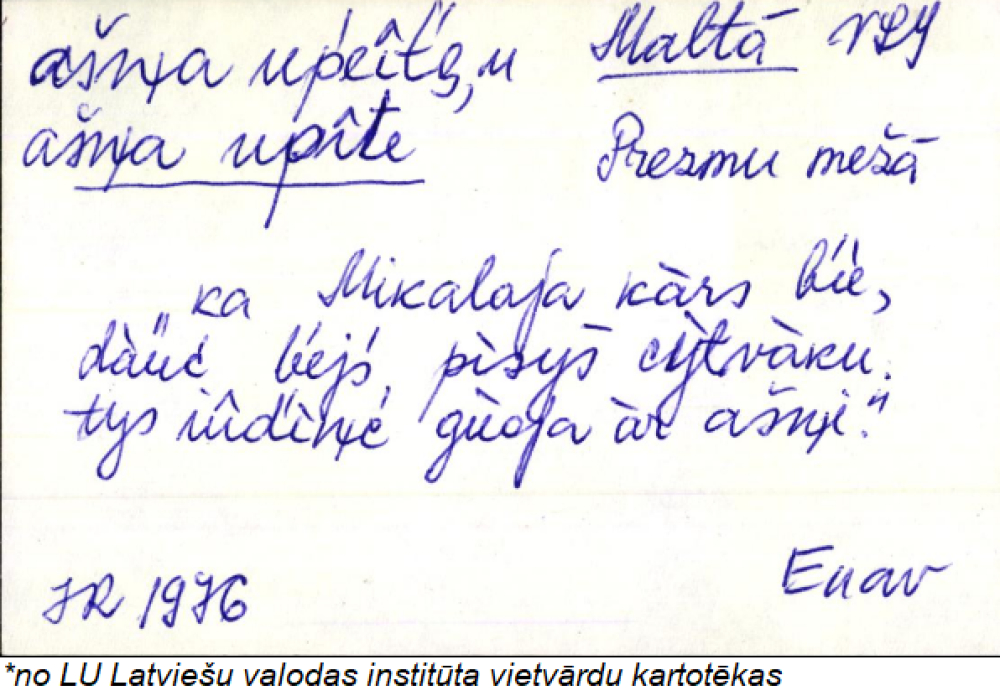 ašņa upeît'e, u Maltā
ašņa upîte Prezmu mežā
„ka Mikalaja kàrs b'ie,
dàuč b'ejś, pìsyš cỳtvàku.
tys iûd'ìņč gùoja àr ašņi."
JR 1976 Enav
*no LU Latviešu valodas institūta vietvārdu kartotēkas